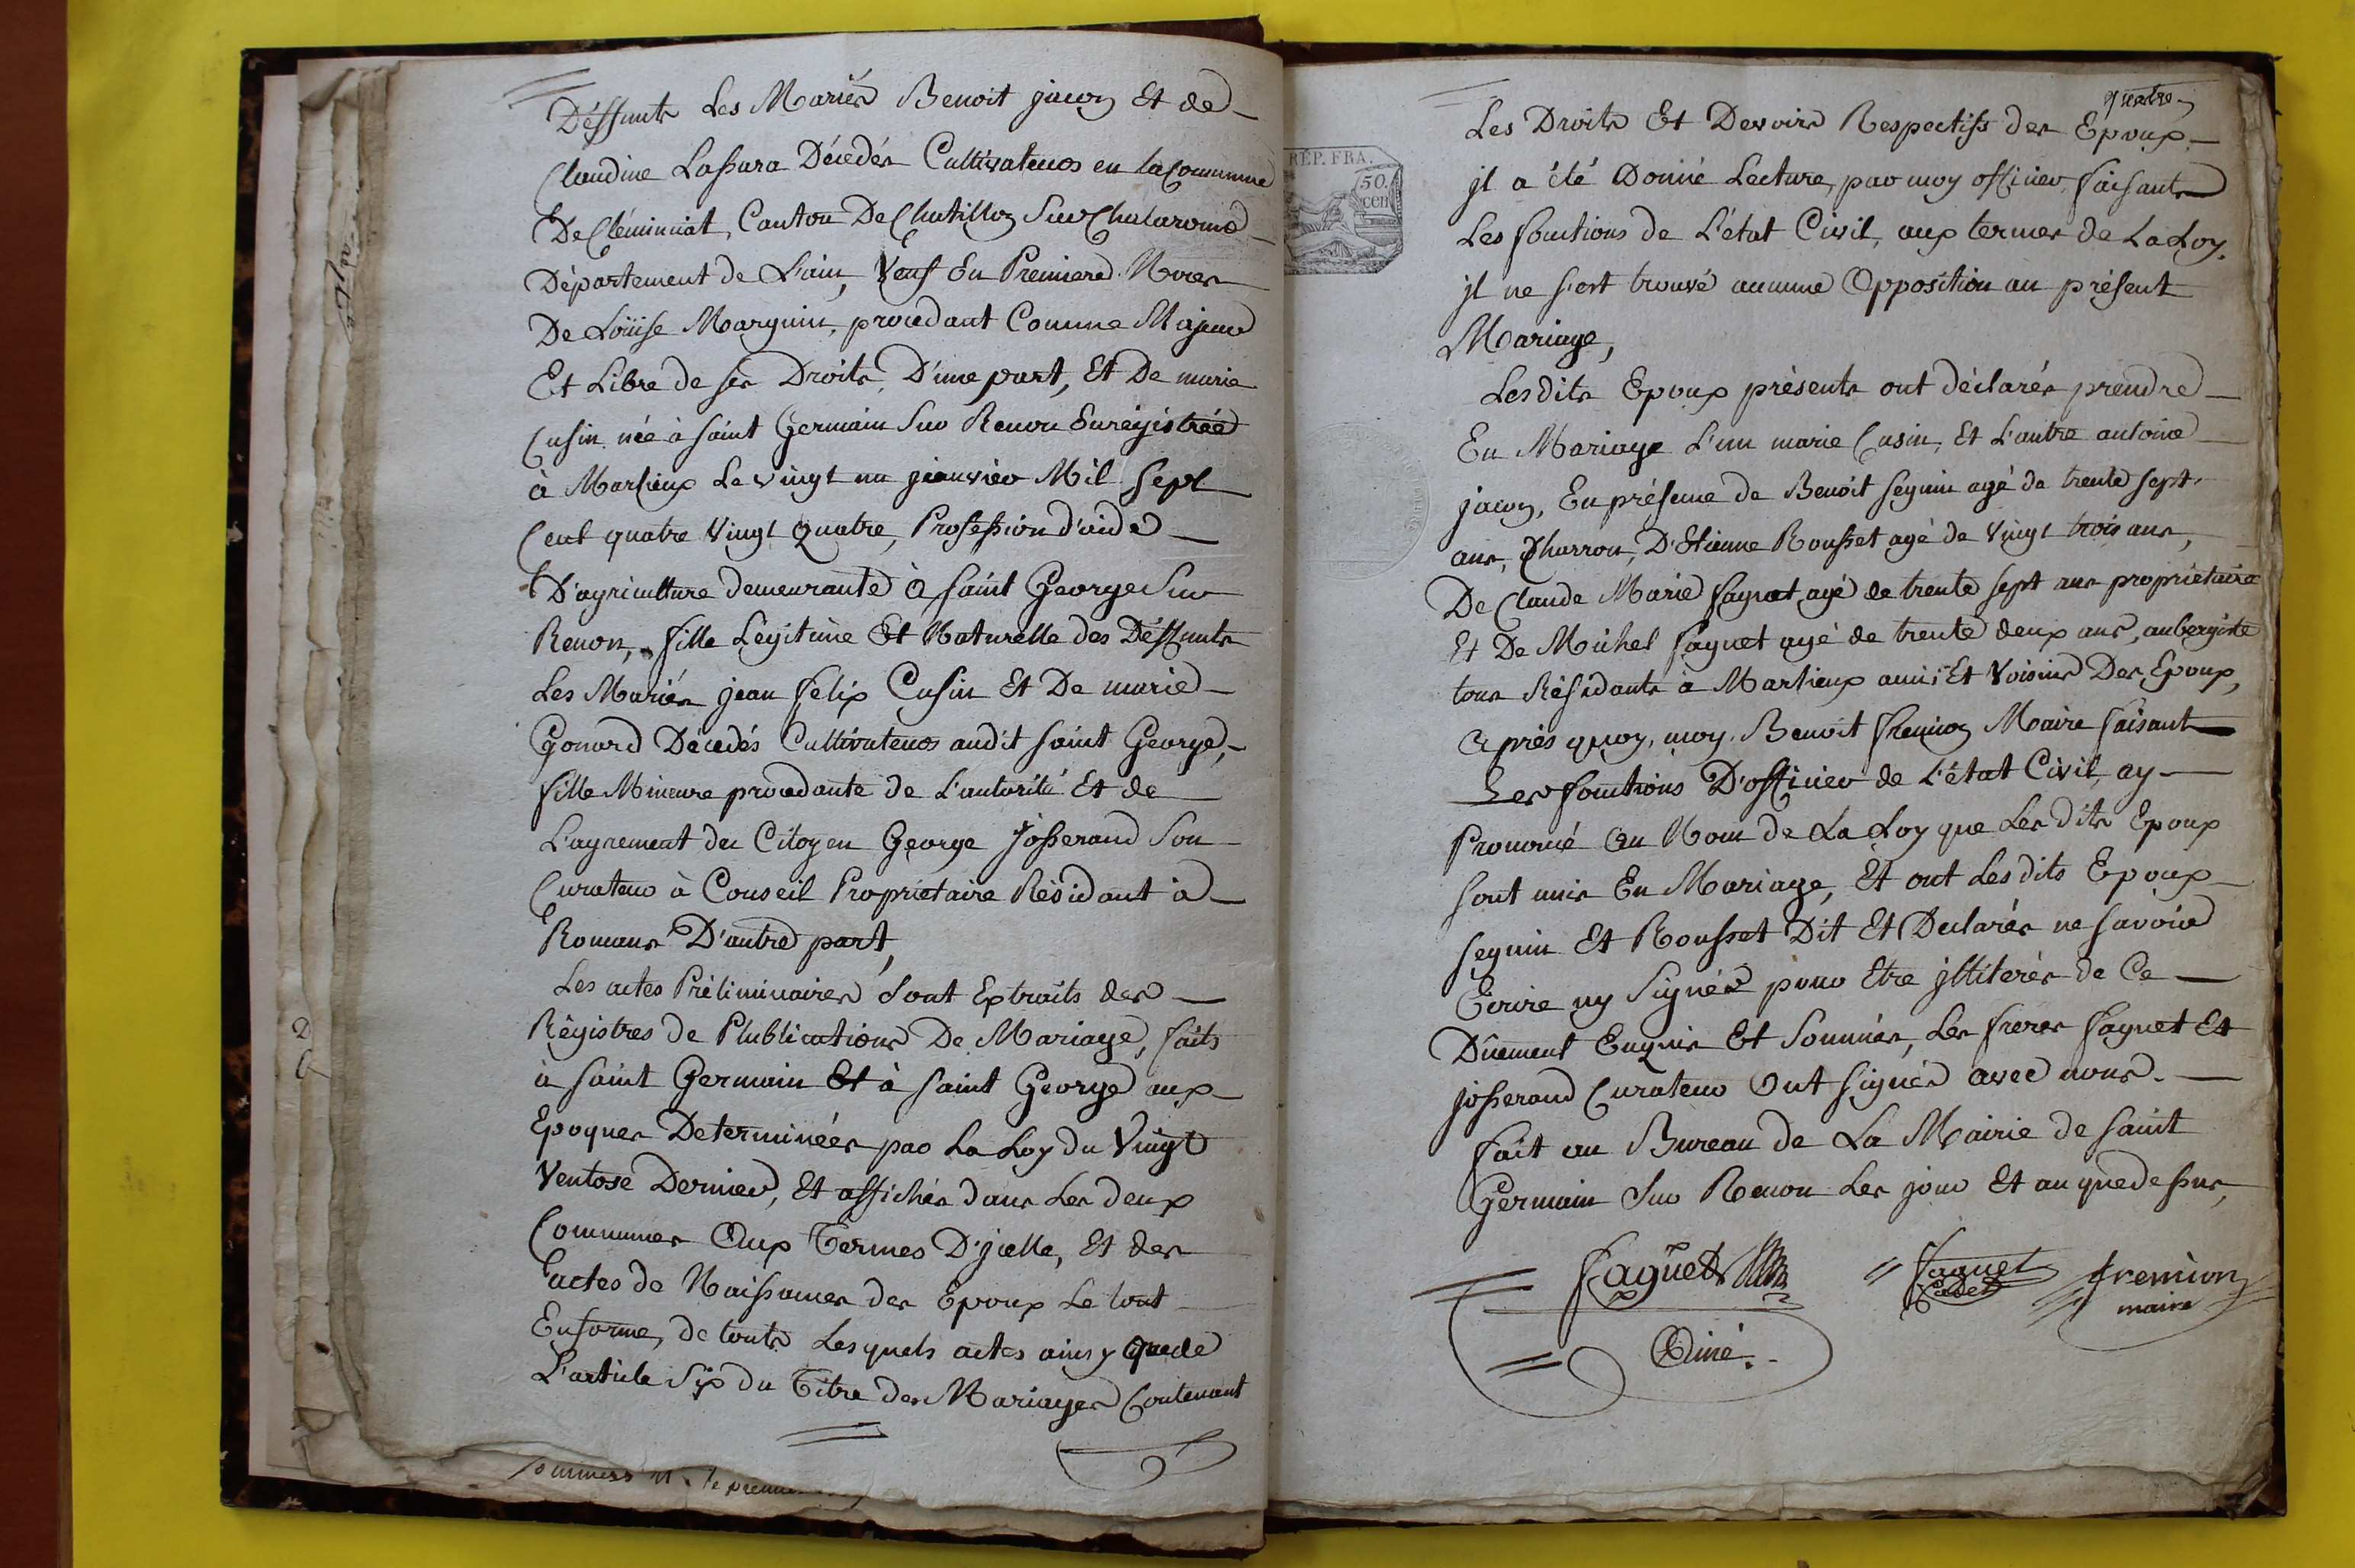 Déffunts Les Mariés Benoit jacoz Et de
Claudine Lassara Décedés Cultivateurs en la Commune
De Cléminciat, Canton De Chatillon Sur Chalaronne
Département de L'ain, Veuf En Premiere Noces
De Loüise Marguin, procedant Comme Majeur
Et Libre de ses Droits, D'une part, Et De marie
Cusin née à saint Germain Sur Renon Enrégistrée
à Marlieux Le vingt un janvier Mil Sept
Cent quatre vingt Quatre, Profession d'aide
D'agriculture demeurante à saint George Sur
Renon, fille Legitime Et Naturelle des Déffunts
Les Mariés jean felix Cusin Et De marie
Gonard Décedés Cultivateurs audit saint George,
fille Mineure procedante de L'autorité Et de
L'agrement du Citoyen George Josserand Son
Curateur à Conseil Propriétaire Résidant à
Romans D'autre part,
Les actes Préliminaires Sont Extraits des
Régistres de Plublications De Mariage, faits
à saint Germain Et à saint George aux
Epoques Determinées par La Loy du Vingt
Ventose Dernier, Et affichés dans Les deux
Communes Aux Termes D'jcelle, Et des
actes de Naissances des Epoux Le tout
En forme, de touts Lesquels actes ainsy que de
L'article Six du Titre des Mariages Contenant
quatre
Les Droits Et Devoirs Respectifs des Epoux
RÉP. FRA.
50.
cen
jl a été Donné Lecture, par moy officier faisant
Les fonctions de L'état Civil, aux termes de La Loy,
jl ne s'est trouvé aucune Opposition au présent
Mariage,
Les dits Epoux présents ont déclarés prendre
En Mariage L'un marie Cusin, Et L'autre antoine
jacoz, En présence de Benoit seguin agé de trente sept
ans, Charron, D'Etienne Rousset agé de Vingt trois ans,
De Claude Marie faguet agé de trente sept ans propriétaire
Et De Michel faguet agé de trente deux ans, aubergiste
tous Résidants à Marlieux amis Et Voisins Des Epoux,
après quoy, moy, Benoit fremion Maire faisant
Les fonctions D'officier de L'état Civil, ay
Prononcé Au Nom de La Loy que Les dits Epoux
sont unis En Mariage, Et ont Les dits Epoux
seguin Et Rousset Dit Et Declarés ne savoir
Ecrire ny Signer pour Etre jlliterés de Ce
Dûement Enquis Et Sommés, Les freres faguet Et
josserand Curateur Ont signés avec nous.
fait au Bureau de La Mairie de saint
Germain Sur Renon Les jour Et an que dessus,
faguet
faguet
Cadet
fremion
maire
Ainé.